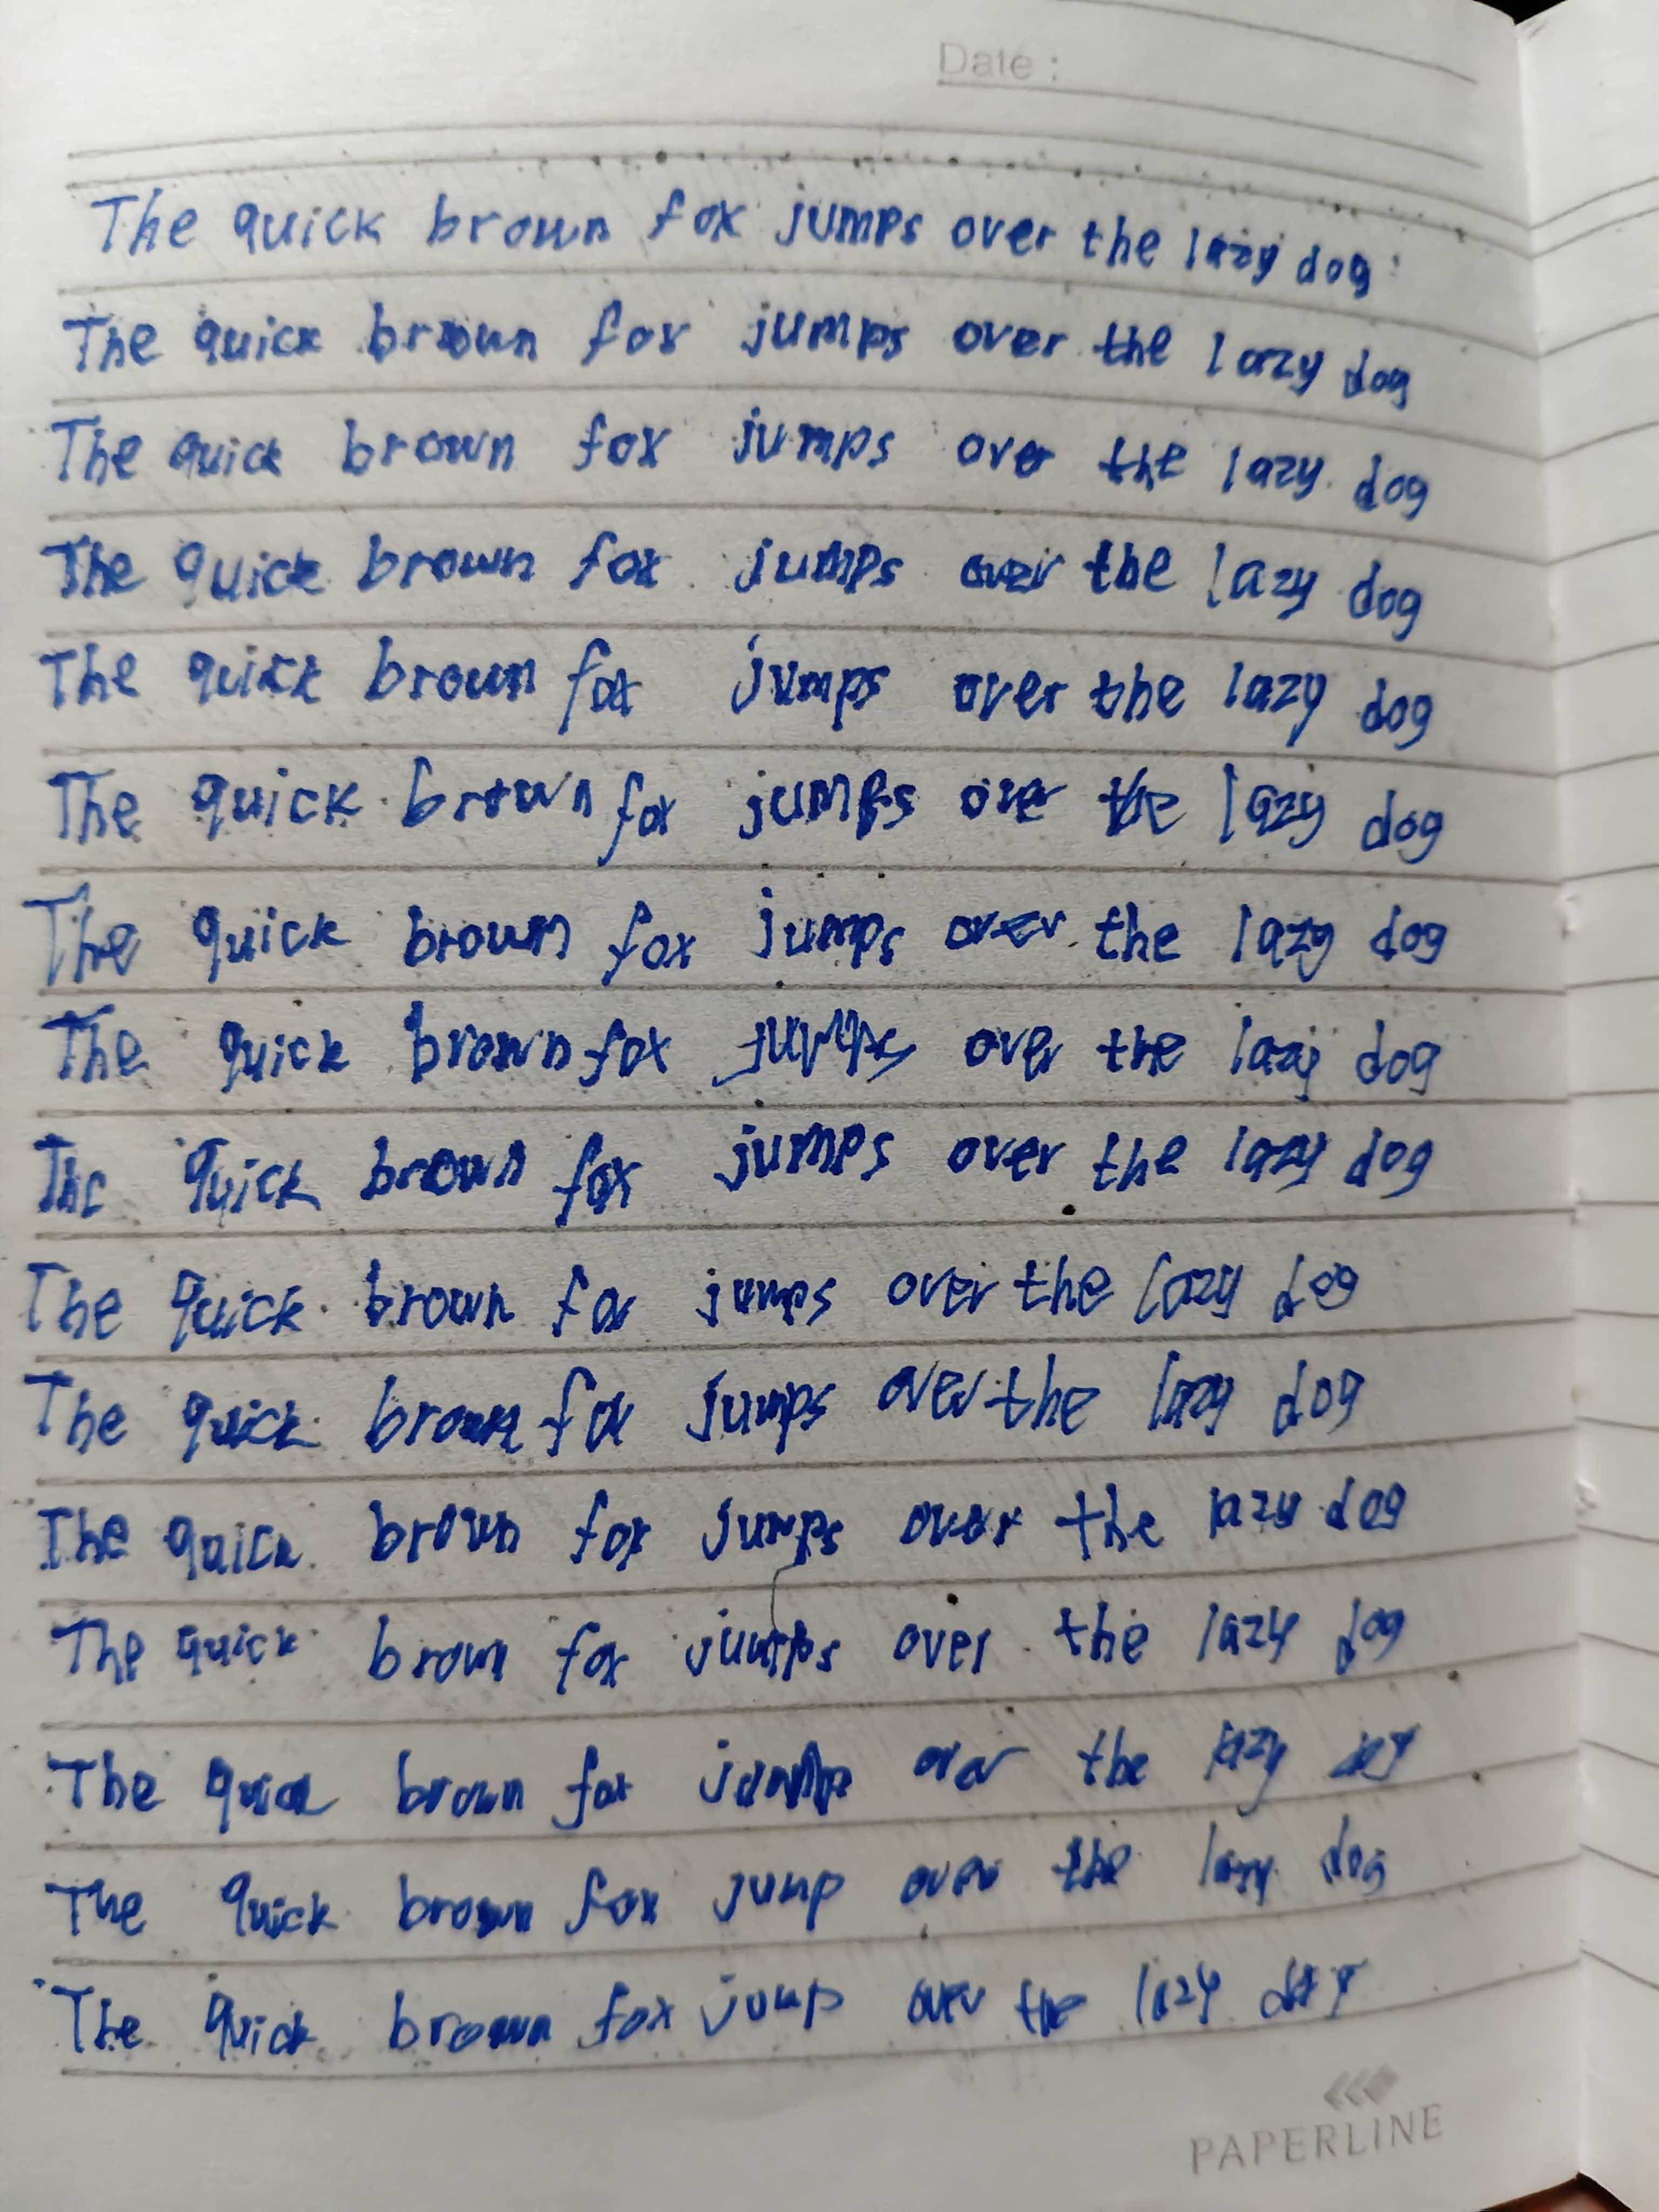 Date :
The quick brown fox jumps over the lazy dog
The quick brown fox jumps over the lazy dog
The quick brown fox jumps over the lazy dog
The quick brown fox jumps over the lazy dog
The quick brown fox jumps over the lazy dog
The quick brown fox jumps over the lazy dog
The quick brown fox jumps over the lazy dog
The quick brown fox jumps over the lazy dog
The quick brown fox jumps over the lazy dog
The quick brown fox jumps over the lazy dog
The quick brown fox jumps over the lazy dog
The quick brown fox jumps over the lazy dog
The quick brown fox jumps over the lazy dog
The quick brown fox over the lazy
The quick brown fox jump over the lazy dog
The quick brown fox jump over the lazy
PAPERLINE